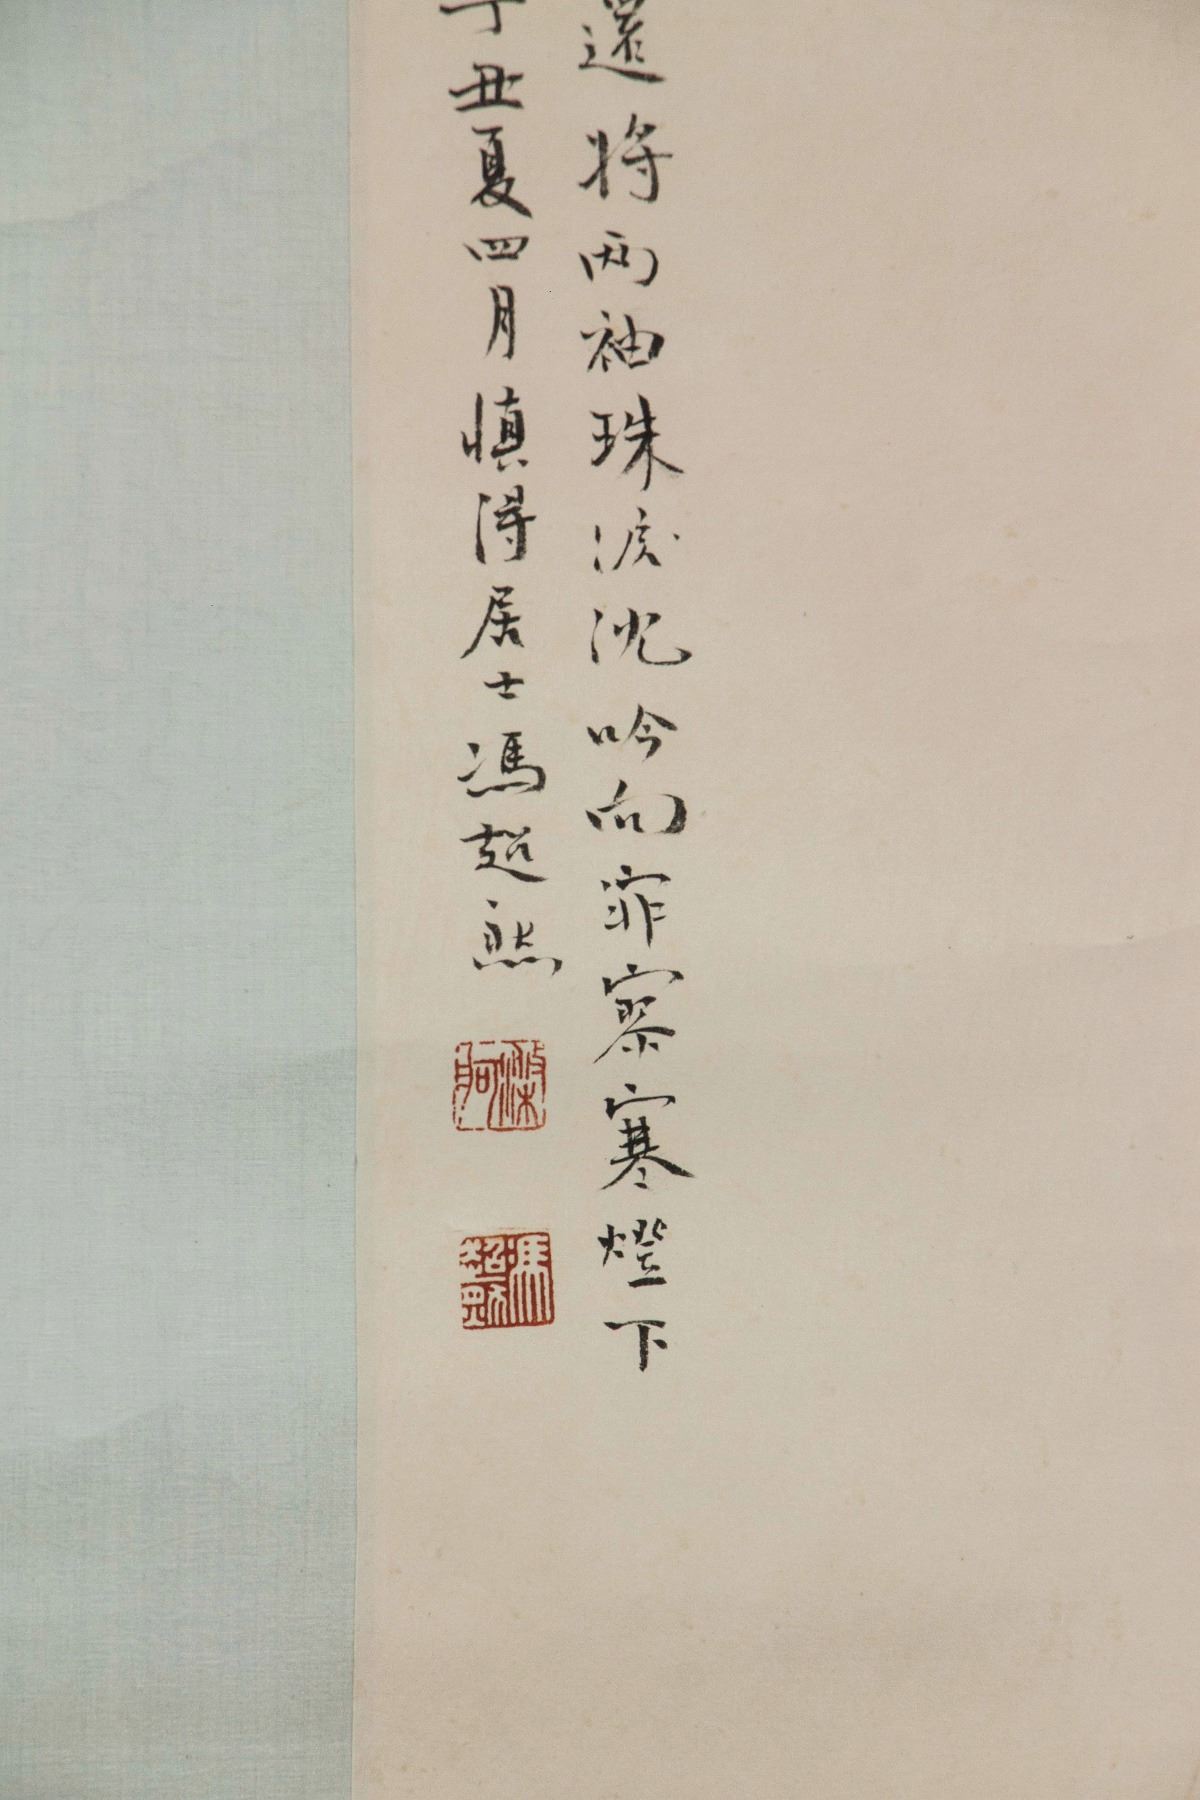 還將兩袖珠淚沈吟向窂寮寒燈下
丁丑夏四月慎得居士馮超然
馮超然